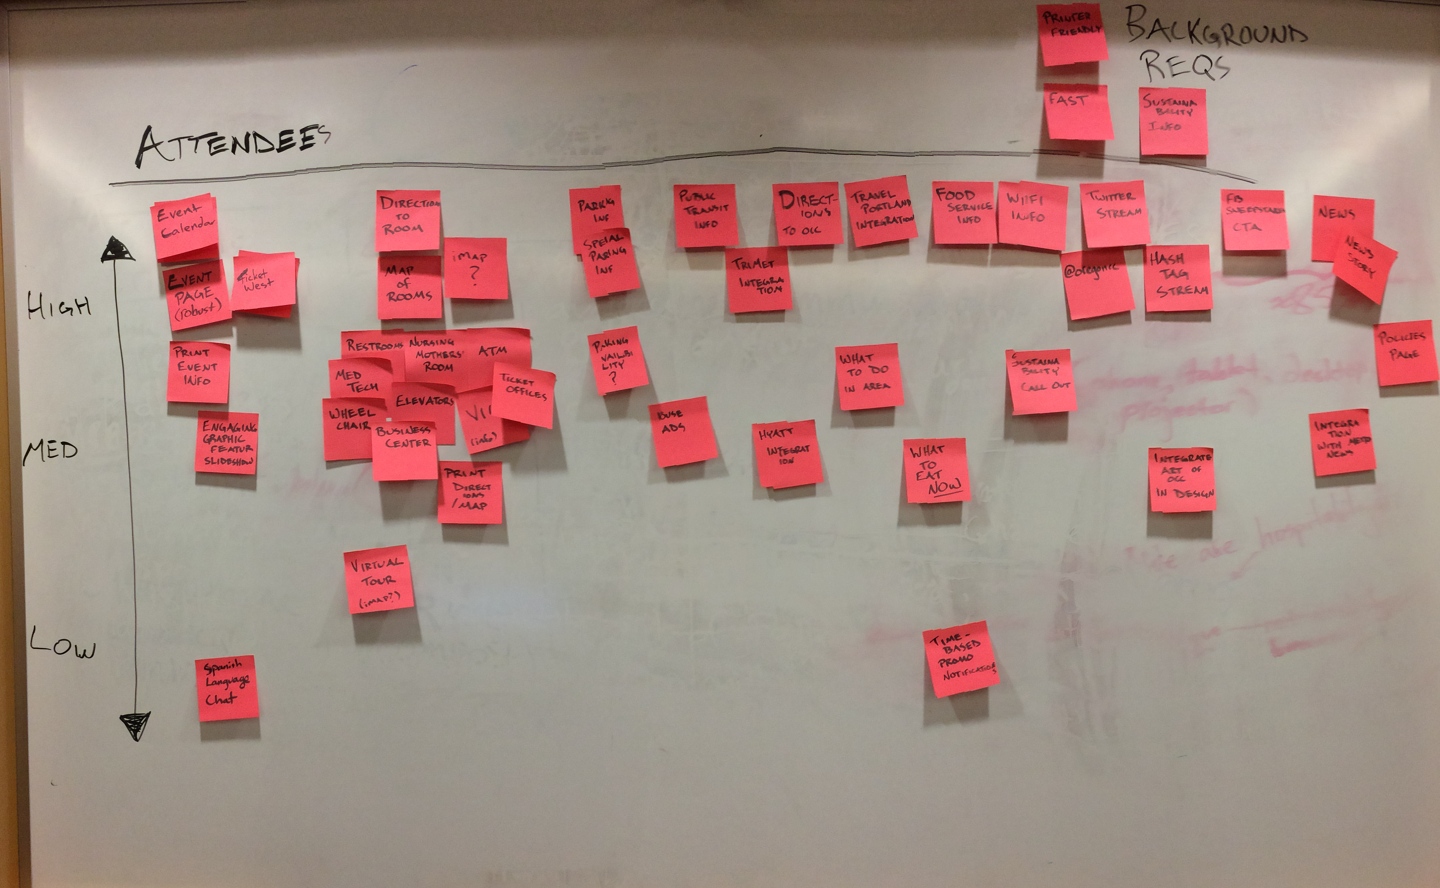 PRINTER
FRIENDLY
BACKGROUND
REQS
FAST
SUSTAINA
BILITY
INFO
ATTENDEES
HIGH
MED
LOW
Event
Calendar
EVENT
PAGE
(robust)
Ticket
West
PRINT
EVENT
INFO
ENGAGING
GRAPHIC
FEATUR
SLIDESHOW
Spanish
Language
Chat
DIRECTION
TO
ROOM
MAP
OF
ROOMS
iMAP
?
RESTROOMS
NURSING
MOTHERS'
ROOM
ATM
MED
TECH
ELEVATORS
TICKET
OFFICES
WHEEL
CHAIR
BUSINESS
CENTER
VIP
(info)
PRINT
DIRECT
IONS
/MAP
VIRTUAL
TOUR
(iMAP?)
PARKG
INF
SPEIAL
PARING
INF
PAKING
VAILBI
LITY
?
PUBLIC
TRANSIT
INFO
TRIMET
INTEGRA
TION
ADS
HYATT
INTEGRAT
ION
DIRECT-
IONS
TO OCC
TRAVEL
PORTLAND
INTEGRATION
WHAT
TO DO
IN AREA
FOOD
SERVICE
INFO
WIIFI
INFO
WHAT
TO
EAT
NOW
TIME-
BASED
PROMO
NOTIFICATIONS
TWITTER
STREAM
@oregoncc
HASH
TAG
STREAM
SUSTAINA
BILITY
CALL OUT
INTEGRATE
ART OF
OCC
IN DESIGN
FB
SWEEPSTAKES
CTA
NEWS
NEWS
STORY
POLICIES
PAGE
INTEGRA
TION
WITH METRO
NEWS